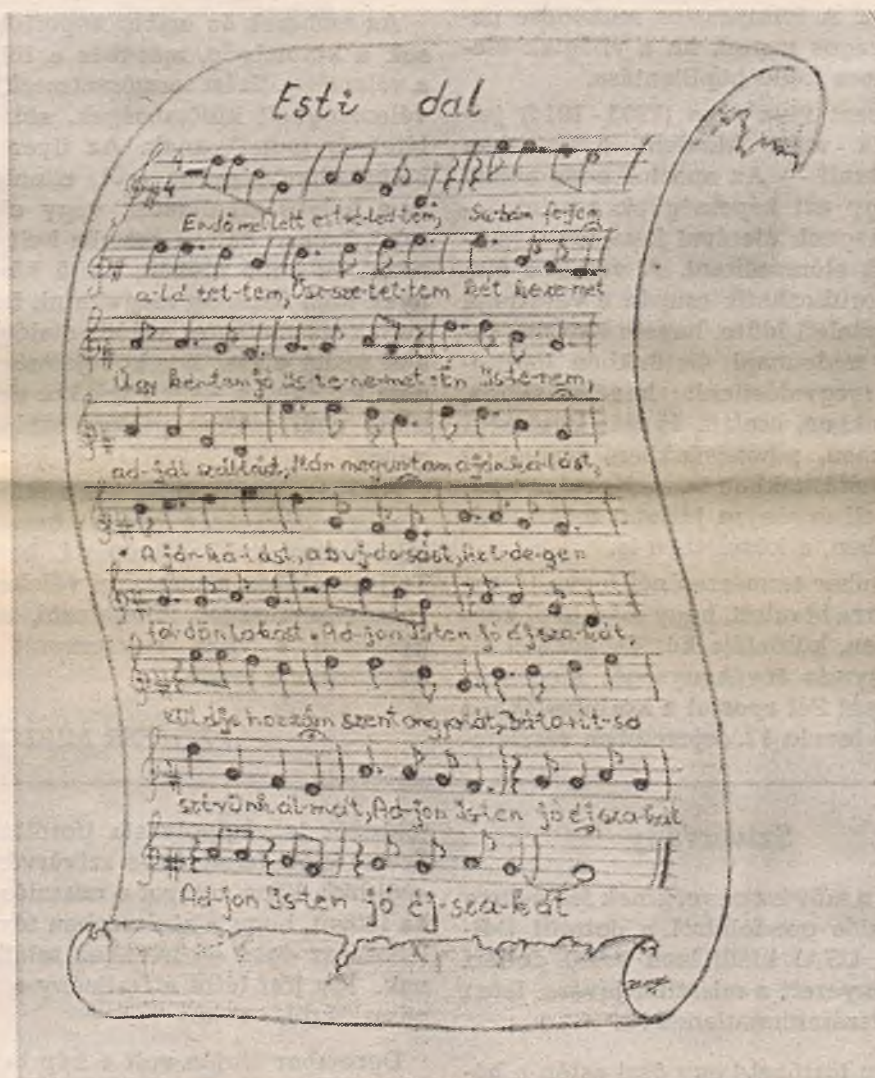 Esti dal
Erdő mellett est-vé-led-tem, Su-bám fe-jem
a-lá tet-tem, Ösz-sze-tet-tem két keze-met
Úgy kértem jó Is-te-ne-met. Én Is-te-nem,
ad-jál szállást, Már meguntam a járá-ká-lást,
A járá-ká-lást, a buj-do-sást,
föl-dön lakást. Ad-jon Isten jó éjsza-kát,
Küldje hozzám szent angyalát, Báto-rít-sa
szívünk ál-mát, Ad-jon Is-ten jó éj-sza-kát
Ad-jon Is-ten jó éj-sza-kát